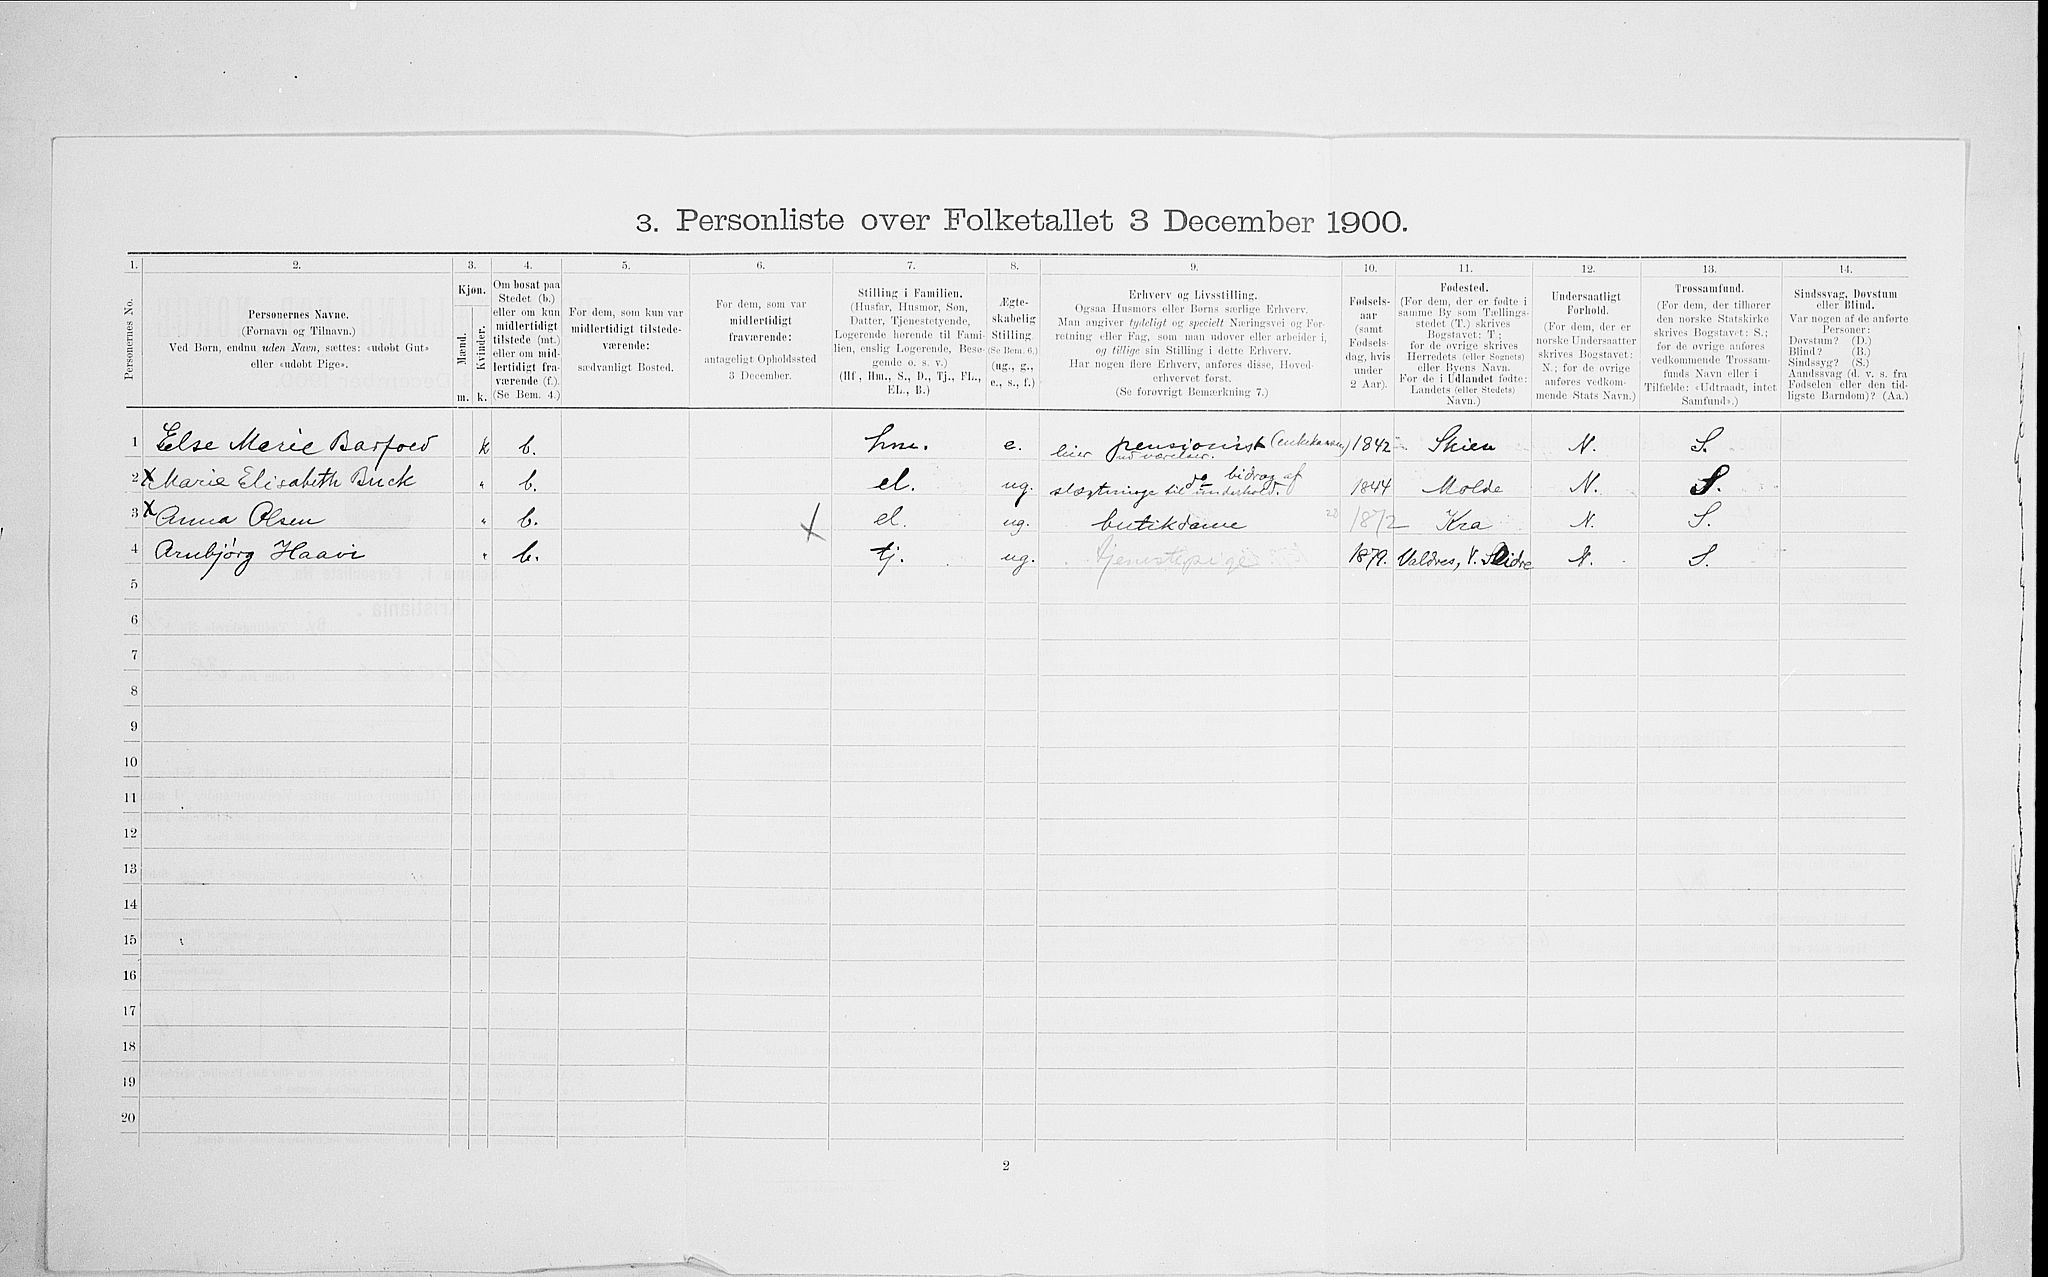 3. Personliste over Folketallet 3 December 1900.
1. 2. 3. 4. 5. 6. 7. 8. 9. 10. 11. 12. 13. 14.
Personernes No.
Personernes Navne.
(Fornavn og Tilnavn.)
Ved Børn, endnu uden Navn, sættes: «udøbt Gut»
eller «udøbt Pige».
Kjøn.
Mænd.
Kvinder.
m. k.
Om bosat paa
Stedet (b.)
eller om kun
midlertidigt
tilstede (mt.)
eller om mid-
lertidigt fra-
værende (f.).
(Se Bem. 4.)
For dem, som kun var
midlertidigt tilstede-
værende:
sædvanligt Bosted.
For dem, som var
midlertidigt
fraværende:
antageligt Opholdssted
3 December.
Stilling i Familien.
(Husfar, Husmor, Søn,
Datter, Tjenestetyende,
Logerende hørende til Fami-
lien, enslig Logerende, Besø-
gende o. s. v.)
(Hf., Hm., S., D., Tj., FL.,
EL., B.)
Ægte-
skabelig
Stilling.
(Se Bem. 6.)
(ug., g.,
e., s., f.)
Erhverv og Livsstilling.
Ogsaa Husmors eller Børns særlige Erhverv.
Man angiver tydeligt og specielt Næringsvei og For-
retning eller Fag, som man udover eller arbeider i,
og tillige sin Stilling i dette Erhverv.
Har nogen flere Erhverv, anføres disse, Hoved-
erhvervet først.
(Se forøvrigt Bemærkning 7.)
Fødsels-
aar
(samt
Fødsels-
dag, hvis
under
2 Aar).
Fødested.
(For dem, der er fødte i
samme By som Tællings-
stedet (T.) skrives
Bogstavet: T.;
for de øvrige skrives
Herredets (eller Sognets)
eller Byens Navn.
For de i Udlandet fødte:
Landets (eller Stedets)
Navn.)
Undersaatligt
Forhold.
(For dem, der er
norske Undersaatter
skrives Bogstavet:
N.; for de øvrige
anføres vedkom-
mende Stats Navn.)
Trossamfund.
(For dem, der tilhører
den norske Statskirke
skrives Bogstavet: S.;
for de øvrige anføres
vedkommende Trossam-
funds Navn eller i
Tilfælde: «Udtraadt, intet
Samfund».)
Sindssvag, Døvstum
eller Blind.
Var nogen af de anførte
Personer:
Døvstum? (D.)
Blind? (B.)
Sindssyg? (S.)
Aandssvag (d. v. s. fra
Fødselen eller den tid-
ligste Barndom)? (Aa.)
1 Else Marie Barfoed k b. hm. e. pensionist (enkekassen) leier ud værelser. 1842 Skien N. S.
2 X Marie Elisabeth Buck " b. el. ug. do bidrag af slægtninge til underhold. 1844 Molde N. S.
3 X Anna Olsen " b. X el. ug. butikdame 1872 Kra N. S.
4 Arnbjørg Haavi " b. tj. ug. tjenestepige 1879. Valdres, V. Slidre N. S.
5
6
7
8
9
10
11
12
13
14
15
16
17
18
19
20
2